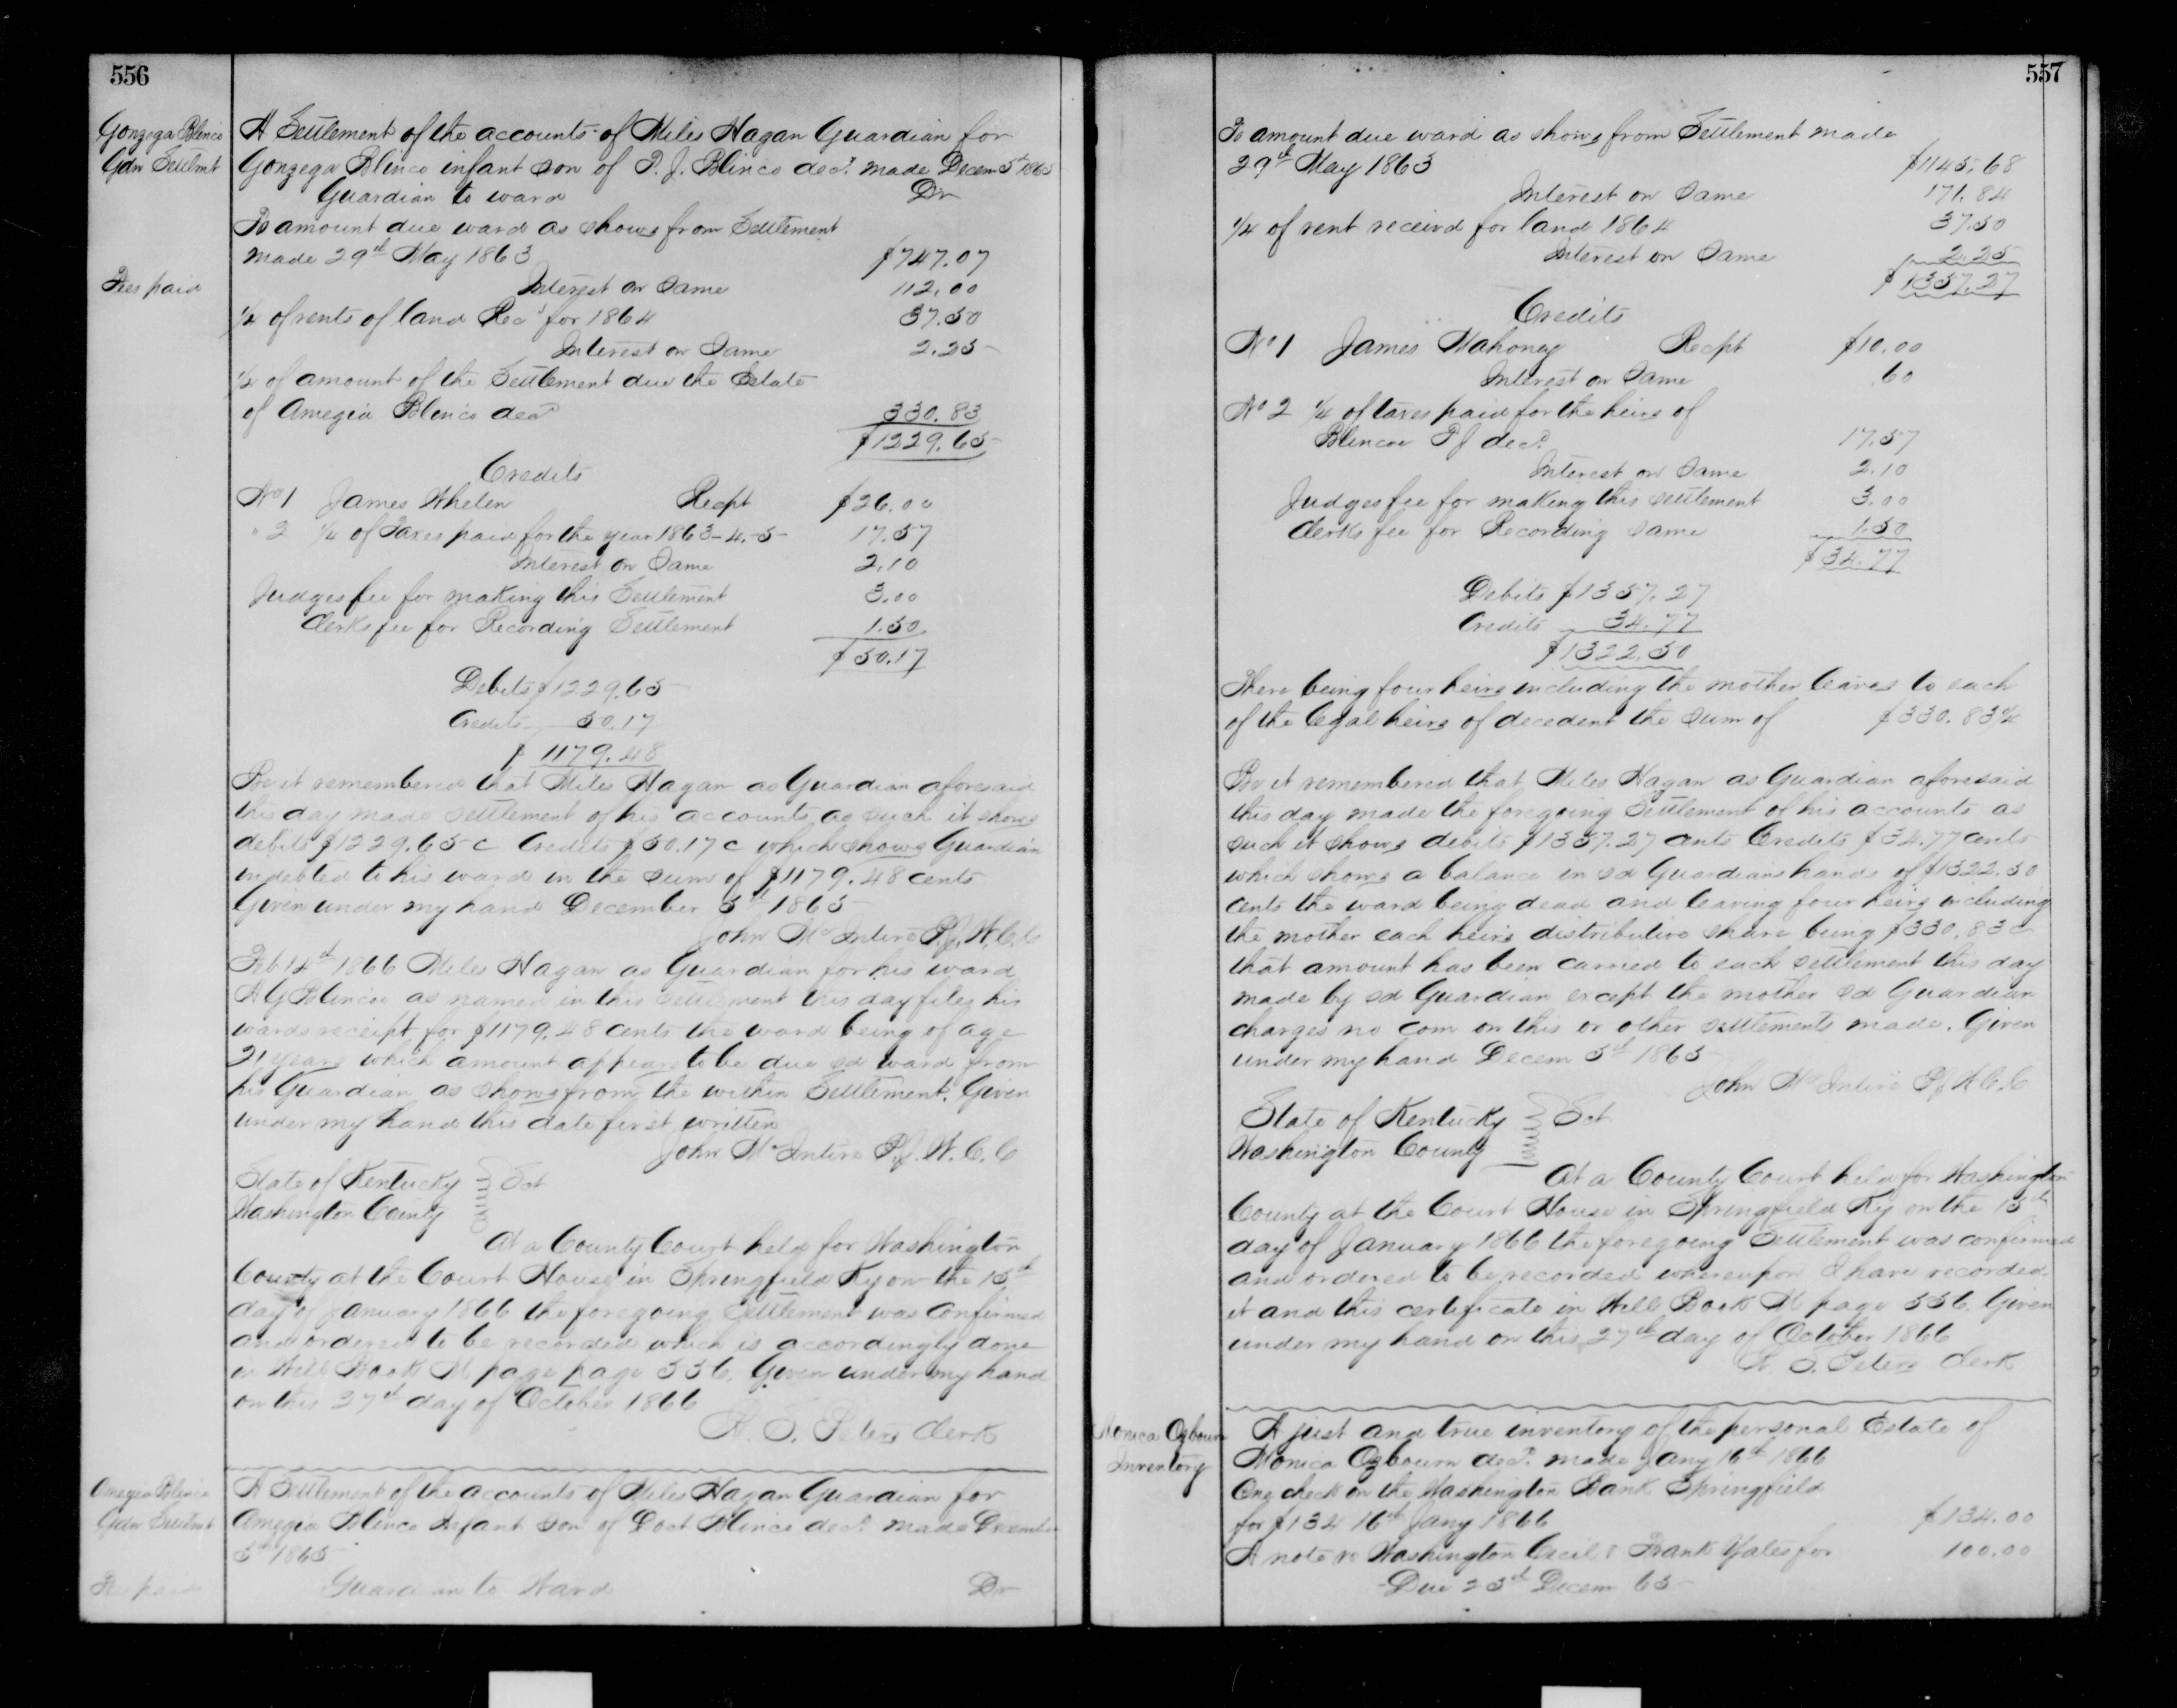 556
Gonzega Blinco
Gdn Settlmt
A Settlement of the accounts of Miles Hagan Guardian for
Gonzega Blinco infant son of P. J. Blinco decd. made Decem 5th 1865
Guardian to ward Dr
To amount due ward as shows from Settlement
made 29th May 1863 $747.07
Fees paid
Interest on Same 112.00
1/4 of rents of land Recd for 1864 37.50
Interest on Same 2.25
1/4 of amount of the Settlement due the Estate
of Amegia Blinco decd 330.83
$1229.65
Credits
No 1 James Whelen Recpt $26.00
" 2 1/4 of Taxes paid for the year 1863-4-5- 17.57
Interest on Same 2.10
Judges fee for making this Settlement 3.00
Clerks fee for Recording Settlement 1.50
$50.17
Debits $1229.65
Credits 50.17
$1179.48
Be it remembered that Miles Hagan as Guardian aforesaid
this day made settlement of his accounts as such it shows
debits $1229.65 c Credits $50.17 c which shows Guardian
indebted to his ward in the sum of $1179.48 cents
Given under my hand December 5th 1865
John McIntire P.J.W.C.C
Feb 14th 1866 Miles Hagan as Guardian for his ward
A G Blincoe as named in this settlement this day files his
wards receipt for $1179.48 cents the ward being of age
21 years which amount appears to be due sd ward from
his Guardian as shows from the within Settlement. Given
under my hand this date first written
John McIntire P.J.W.C.C
State of Kentucky Sct
Washington County
At a County Court held for Washington
County at the Court House in Springfield Ky on the 15th
day of January 1866 the foregoing Settlement was confirmed
and ordered to be recorded which is accordingly done
in Will Book M page page 556. Given under my hand
on this 27th day of October 1866
W. S. Peters Clerk
Amegia Blinco
Gdn Settlmt
A Settlement of the accounts of Miles Hagan Guardian for
Amegia Blinco Infant son of Doct Blinco decd. made December
5th 1865
Fees paid
Guardian to Ward Dr
557
To amount due ward as shows from Settlement made
29th May 1863 $1145.68
Interest on Same 171.84
1/4 of rent receivd for land 1864 37.50
Interest on Same 2.25
$1357.27
Credits
No 1 James Mahoney Recpt $10.00
Interest on Same .60
No 2 1/4 of taxes paid for the heirs of
Blincoe P J decd. 17.57
Interest on Same 2.10
Judges fee for making this settlement 3.00
Clerks fee for Recording same 1.50
$34.77
Debits $1357.27
Credits 34.77
$1322.50
There being four heirs including the mother leaves to each
of the legal heirs of decedent the sum of $330.83 1/4
Be it remembered that Miles Hagan as Guardian aforesaid
this day made the foregoing Settlement of his accounts as
such it shows debits $1357.27 cents Credits $34.77 cents
which shows a balance in sd Guardians hands of $1322.50
cents the ward being dead and leaving four heirs including
the mother each heirs distributive share being $330.83 c
that amount has been carried to each settlement this day
made by sd Guardian except the mother sd Guardian
charges no com on this or other settlements made. Given
under my hand Decem 5th 1865
John McIntire P J W.C.C
State of Kentucky Sct
Washington County
At a County Court held for Washington
County at the Court House in Springfield Ky on the 15th
day of January 1866 the foregoing Settlement was confirmed
and ordered to be recorded whereupon I have recorded
it and this certificate in Will Book M page 556. Given
under my hand on this 27th day of October 1866
W. S. Peters Clerk
Monica Ozbourn
Inventory
A just and true inventory of the personal Estate of
Monica Ozbourn decd. made Jany 16th 1866
One check on the Washington Bank Springfield
for $134 16th Jany 1866 $134.00
A note vs Washington Cecil & Frank Yates for 100.00
Due 25th Decem 65